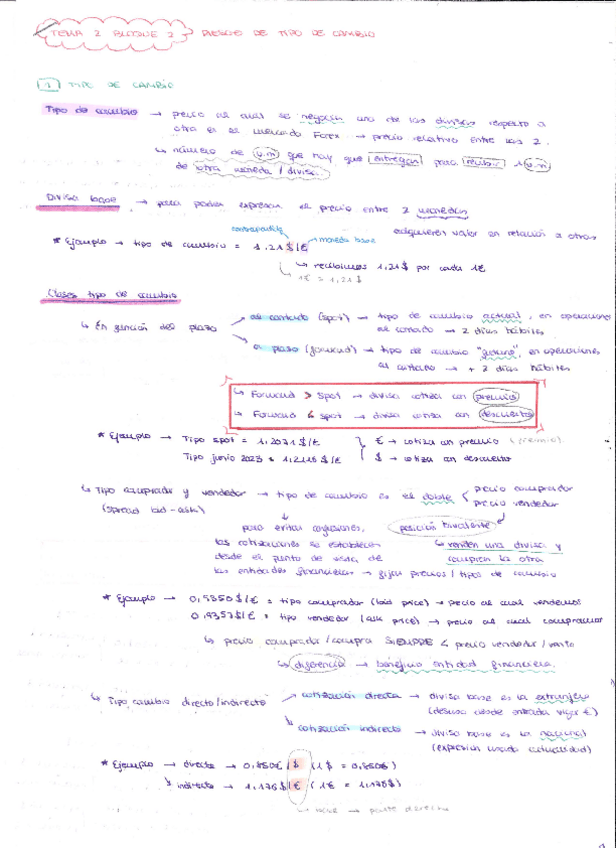 TEMA 2 BLOQUE 2 RIESGO DE TIPO DE CAMBIO
1 TIPO DE CAMBIO
Tipo de cambio → precio al cual se negocian una de las divisas respecto a
otra en el mercado Forex → precio relativo entre las 2.
↳ número de u.m que hay que entregar para recibir 1 u.m
de otra moneda / divisa.
Divisa base → para poder expresar el precio entre 2 monedas
contrapartida adquieren valor en relación a otras
* Ejemplo → tipo de cambio = 1,21 $/€ → moneda base
↳ recibimos 1,21$ por cada 1€
↳ 1€ = 1,21$
Clases tipo de cambio
↳ En función del plazo
al contado (spot) → tipo de cambio actual, en operaciones
al contado → 2 días hábiles
a plazo (forward) → tipo de cambio "futuro", en operaciones
→ + 2 días hábiles
↳ Forward > Spot → divisa cotiza con premio
↳ Forward < Spot → divisa cotiza con descuento
* Ejemplo → Tipo spot = 1,2071 $/€ € → cotiza con premio (premio)
Tipo junio 2023 = 1,2116 $/€ $ → cotiza con descuento
↳ Tipo comprador y vendedor → tipo de cambio es el doble precio comprador
(spread bid-ask) precio vendedor
para evitar confusiones, posición bivalente
las cotizaciones se establecen ↳ venden una divisa y
desde el punto de vista de compran la otra
las entidades financieras → fijan precios / tipos de cambio
* Ejemplo → 0,9350 $/€ = tipo comprador (bid price) → precio al cual vendemos
0,9357 $/€ = tipo vendedor (ask price) → precio al cual compramos
↳ precio comprador / compra SIEMPRE < precio vendedor / venta
↳ diferencia → beneficio entidad financiera.
↳ Tipo cambio directo/indirecto
cotización directa → divisa base es la extranjera
(desuso desde entrada vigor €)
cotización indirecta → divisa base es la nacional
(expresión usada actualidad)
* Ejemplo → directa → 0,850€/$ (1$ = 0,850€)
↳ indirecta → 1,176$/€ (1€ = 1,176$)
↳ base → parte derecha